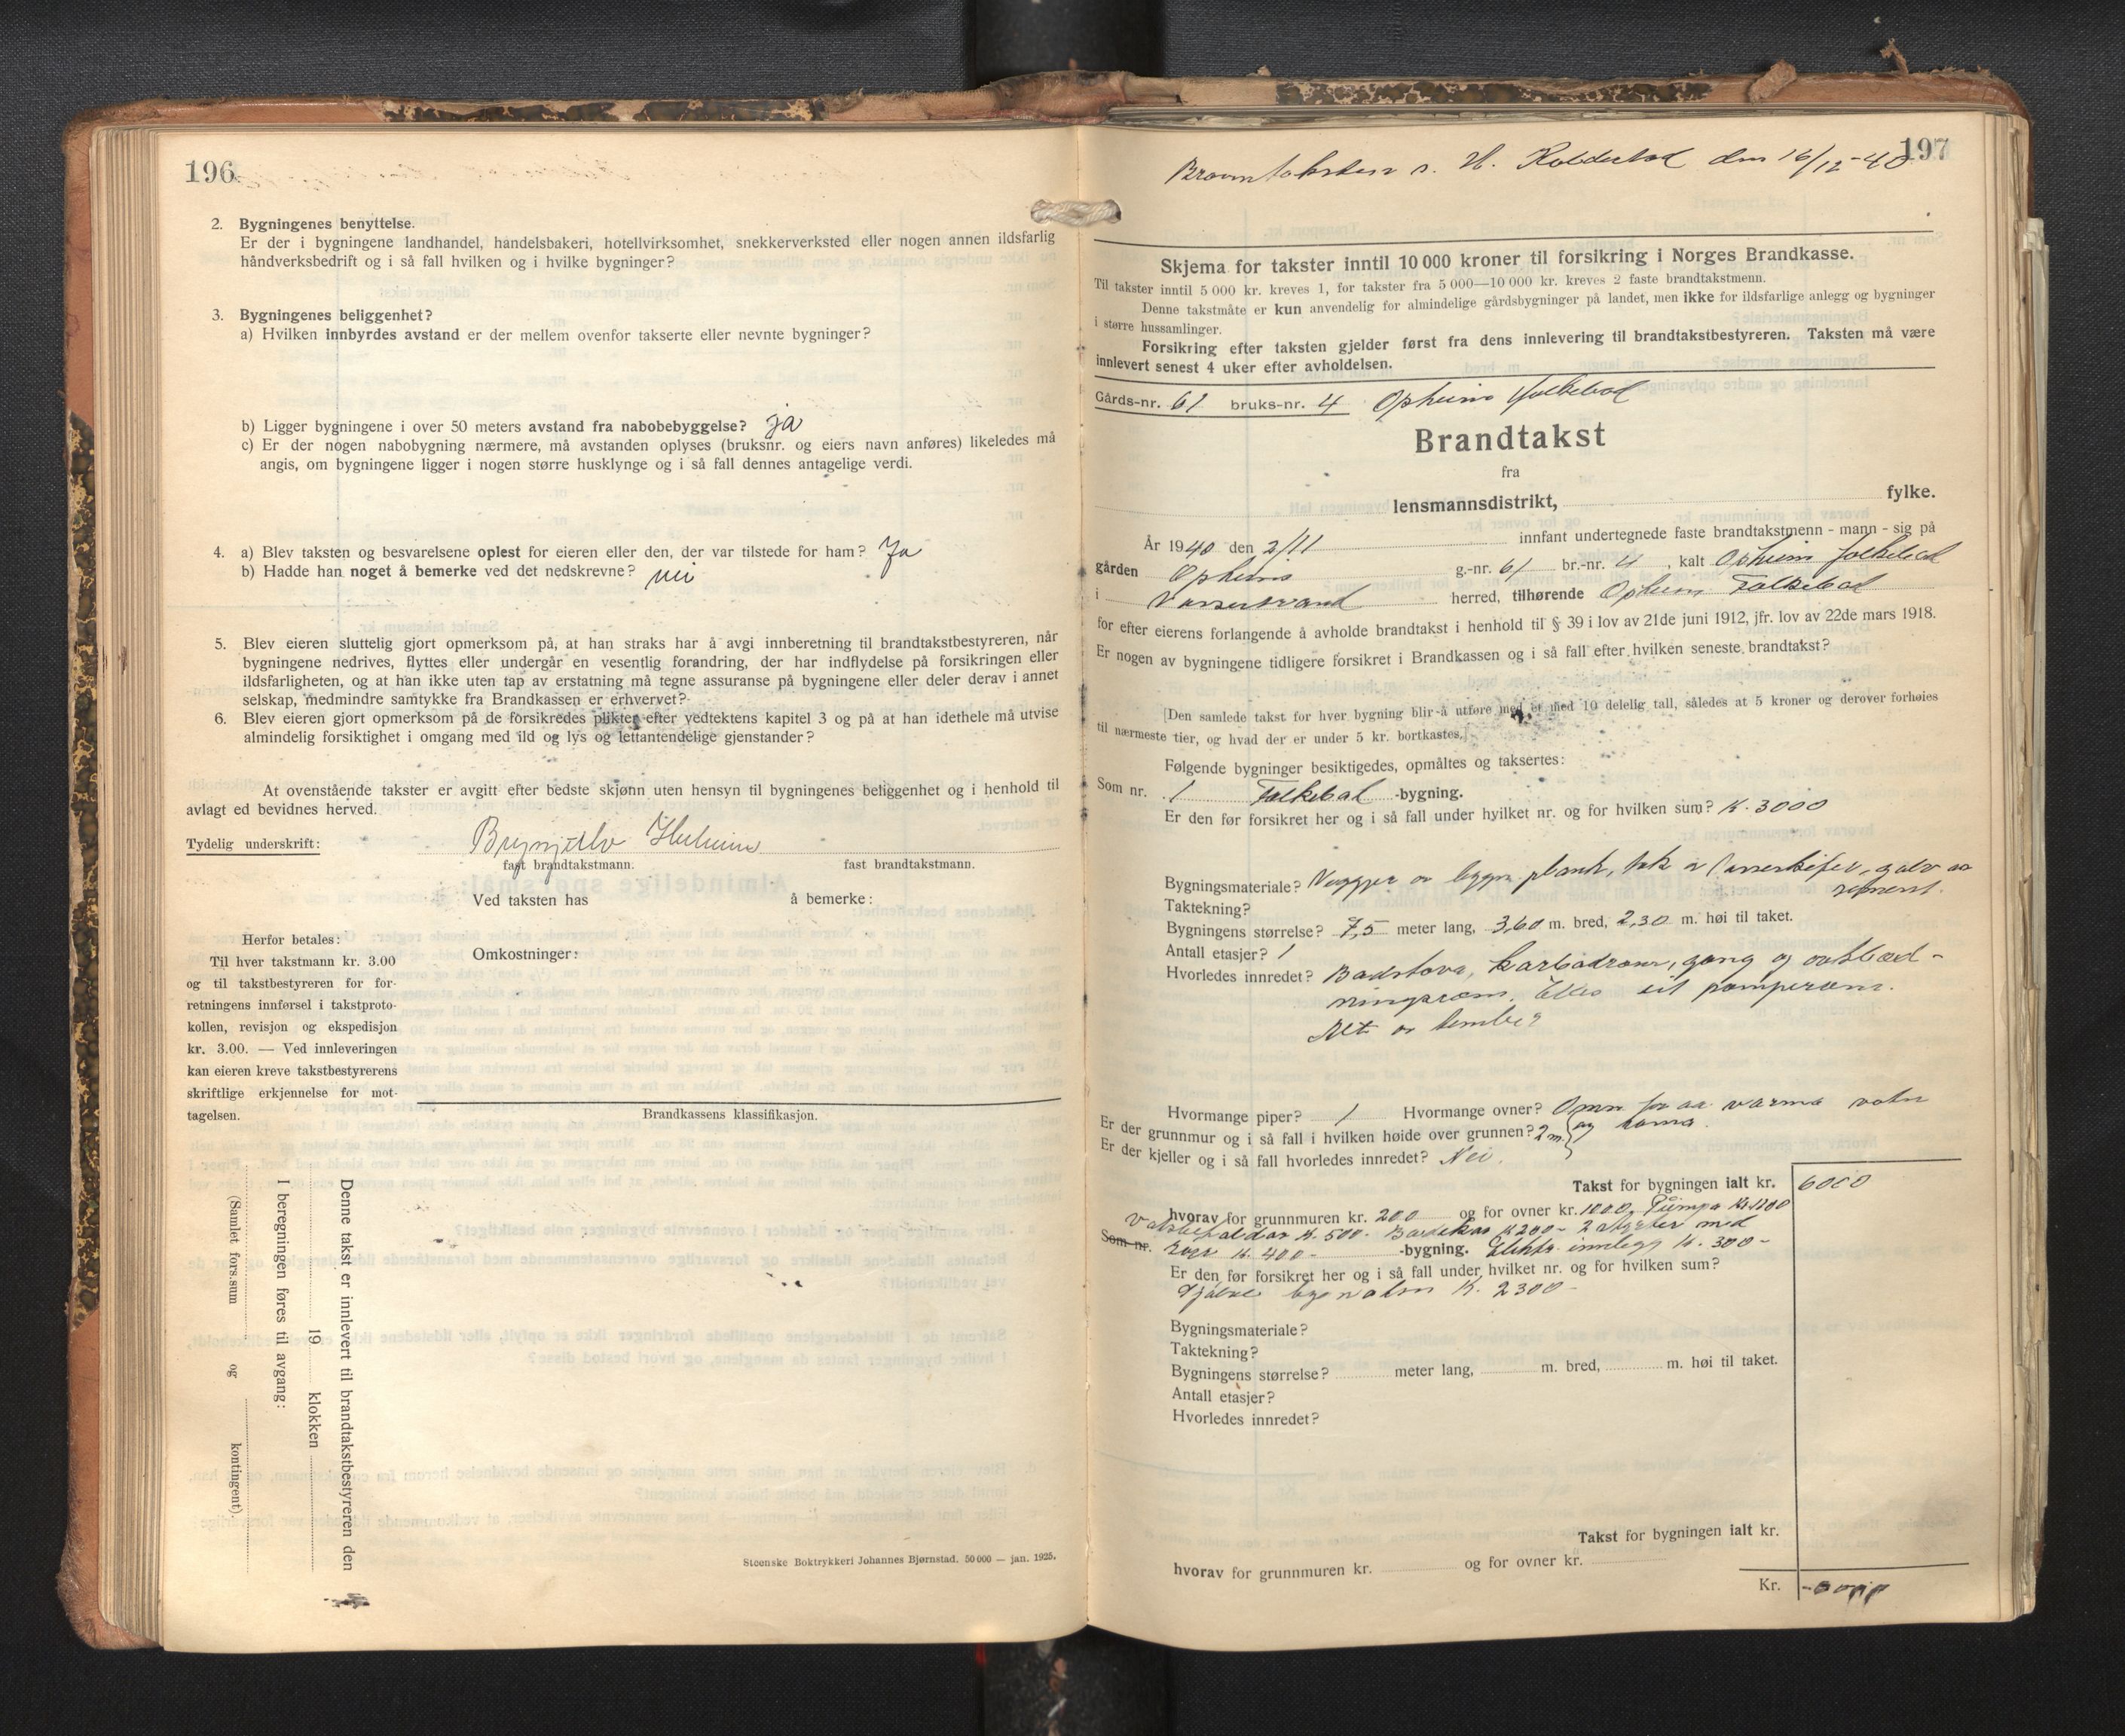 196
2. Bygningenes benyttelse.
Er der i bygningene landhandel, handelsbakeri, hotellvirksomhet, snekkerverksted eller nogen annen ildsfarlig
håndverksbedrift og i så fall hvilken og i hvilke bygninger?
3. Bygningenes beliggenhet?
a) Hvilken innbyrdes avstand er der mellem ovenfor takserte eller nevnte bygninger?
b) Ligger bygningene i over 50 meters avstand fra nabobebyggelse? ja
c) Er der nogen nabobygning nærmere, må avstanden oplyses (bruksnr. og eiers navn anføres) likeledes må
angis, om bygningene ligger i nogen større husklynge og i så fall dennes antagelige verdi.
4. a) Blev taksten og besvarelsene oplest for eieren eller den, der var tilstede for ham? Ja
b) Hadde han noget å bemerke ved det nedskrevne? nei
5. Blev eieren sluttelig gjort opmerksom på, at han straks har å avgi innberetning til brandtakstbestyreren, når
bygningene nedrives, flyttes eller undergår en vesentlig forandring, der har indflydelse på forsikringen eller
ildsfarligheten, og at han ikke uten tap av erstatning må tegne assuranse på bygningene eller deler derav i annet
selskap, medmindre samtykke fra Brandkassen er erhvervet?
6. Blev eieren gjort opmerksom på de forsikredes plikter efter vedtektens kapitel 3 og på at han idethele må utvise
almindelig forsiktighet i omgang med ild og lys og lettantendelige gjenstander?
At ovenstående takster er avgitt efter bedste skjønn uten hensyn til bygningenes beliggenhet og i henhold til
avlagt ed bevidnes herved.
Tydelig underskrift:
fast brandtakstmann. fast brandtakstmann.
Ved taksten has å bemerke:
Herfor betales:
Til hver takstmann kr. 3.00
og til takstbestyreren for for-
retningens innførsel i takstproto-
kollen, revisjon og ekspedisjon
kr. 3.00. — Ved innleveringen
kan eieren kreve takstbestyrerens
skriftlige erkjennelse for mot-
tagelsen.
Omkostninger:
Brandkassens klassifikasjon.
Denne takst er innlevert til brandtakstbestyreren den
19 klokken
I beregningen føres til avgang:
(Samlet fors.sum og kontingent).
Steenske Boktrykkeri Johannes Bjørnstad. 50 000 — jan. 1925.
197
H. den 16/12-40
Skjema for takster inntil 10 000 kroner til forsikring i Norges Brandkasse.
Til takster inntil 5 000 kr. kreves 1, for takster fra 5 000—10 000 kr. kreves 2 faste brandtakstmenn.
Denne takstmåte er kun anvendelig for almindelige gårdsbygninger på landet, men ikke for ildsfarlige anlegg og bygninger
i større hussamlinger.
Forsikring efter taksten gjelder først fra dens innlevering til brandtakstbestyreren. Taksten må være
innlevert senest 4 uker efter avholdelsen.
Gårds-nr. 61 bruks-nr. 4 Opheim Folkebad
Brandtakst
fra
lensmannsdistrikt, fylke.
År 1940 den 2/11 innfant undertegnede faste brandtakstmenn - mann - sig på
gården Opheim g.-nr. 61 br.-nr. 4, kalt Opheim folkebad
i Vossestrand herred, tilhørende Opheim Folkebad
for efter eierens forlangende å avholde brandtakst i henhold til § 39 i lov av 21de juni 1912, jfr. lov av 22de mars 1918.
Er nogen av bygningene tidligere forsikret i Brandkassen og i så fall efter hvilken seneste brandtakst?
[Den samlede takst for hver bygning blir å utføre med et med 10 delelig tall, således at 5 kroner og derover forhøies
til nærmeste tier, og hvad der er under 5 kr. bortkastes.]
Følgende bygninger besiktigedes, opmåltes og taksertes:
Som nr. 1 Folkebad -bygning.
Er den før forsikret her og i så fall under hvilket nr. og for hvilken sum? K. 3000
Bygningsmateriale? Vegger av plank, tak
sement.
Taktekning?
Bygningens størrelse? 7,5 meter lang, 3,60 m. bred, 2,30 m. høi til taket.
Antall etasjer? 1
Hvorledes innredet? Badstova, karbadrom, gang og avkled-
ningsrom. Elles eit pumperom.
Alt av
Hvormange piper? 1 Hvormange ovner? Omn for aa varma vatn
Er der grunnmur og i så fall i hvilken høide over grunnen? 2 m. og
Er der kjeller og i så fall hvorledes innredet? Nei.
Takst for bygningen ialt kr. 6000
hvorav for grunnmuren kr. 200 og for ovner kr. 1000 Pumpa Kr 1200
K. 500- Badekar K 200- 2 med
Som nr. K. 400- -bygning. Elektr. innlegg K. 300-
Er den før forsikret her og i så fall under hvilket nr. og for hvilken sum?
K. 2300-
Bygningsmateriale?
Taktekning?
Bygningens størrelse? meter lang, m. bred, m. høi til taket.
Antall etasjer?
Hvorledes innredet?
Takst for bygningen ialt kr.
hvorav for grunnmuren kr. og for ovner kr.
Kr.